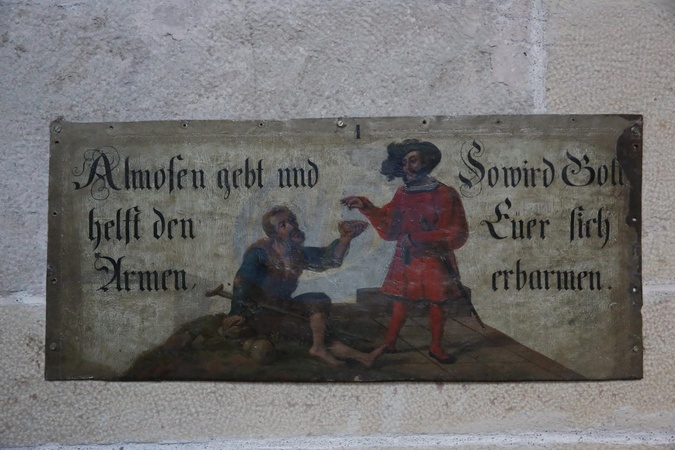 I
Almosen gebt und
helft den
Armen,
So wird Gott
Euer sich
erbarmen.